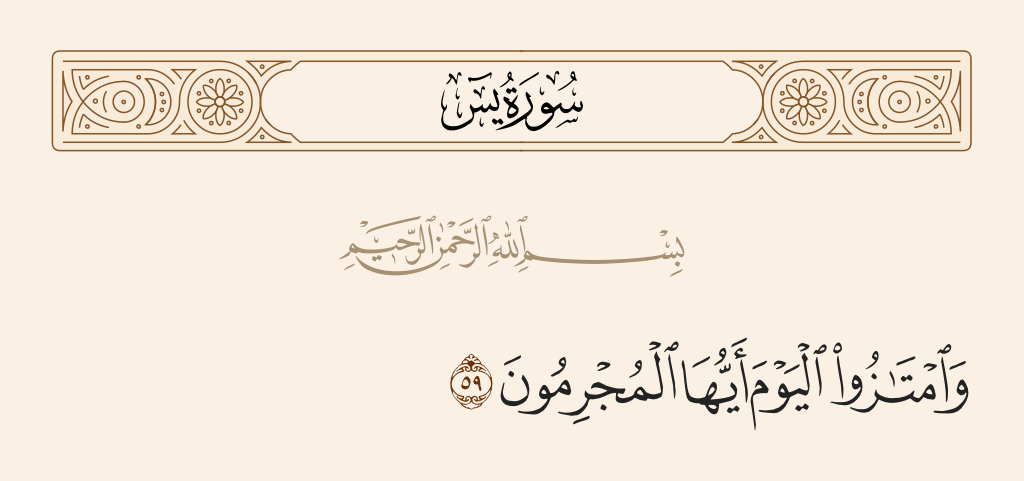 سُورَةُ يسٓ
بِسْمِ ٱللَّهِ ٱلرَّحْمَٰنِ ٱلرَّحِيمِ
وَٱمْتَـٰزُوا۟ ٱلْيَوْمَ أَيُّهَا ٱلْمُجْرِمُونَ ٥٩